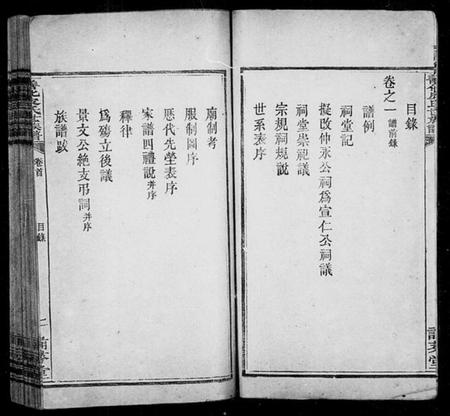 目錄
卷之一 譜前錄
譜例
祠堂記
擬改仲永公祠為宣仁公祠議
祠堂崇祀議
宗規祠規說
世系表序
廟制考
服制圖序
歷代先塋表序
家譜四禮說 并序
釋律
為殤立後議
景文公絶支弔詞 并序
族譜跋
卷首
目錄
二